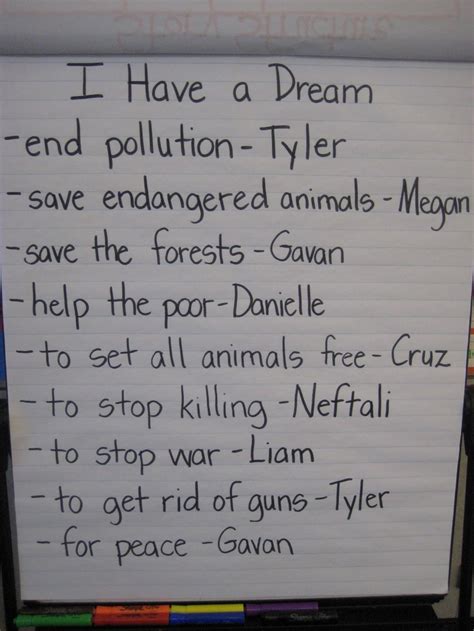 I Have a Dream
-end pollution-Tyler
-save endangered animals-Megan
-save the forests-Gavan
-help the poor-Danielle
-to set all animals free-Cruz
-to stop killing-Neftali
-to stop war-Liam
-to get rid of guns-Tyler
-for peace-Gavan